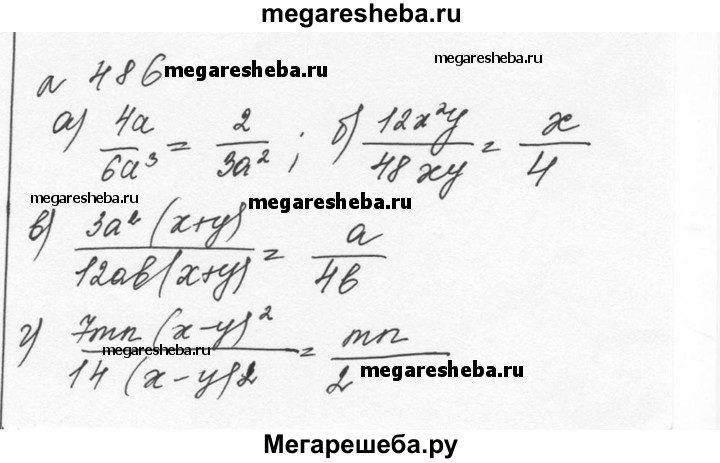 megaresheba.ru
№ 486 megaresheba.ru megaresheba.ru
а) 4a/6a³ = 2/3a² ; б) 12x²y/48xy = x/4
megaresheba.ru megaresheba.ru
в) 3a²(x+y)/12ab(x+y) = a/4b
г) 7mn(x-y)²/14(x-y)2 = mn/2
megaresheba.ru megaresheba.ru
Мегарешеба.ру